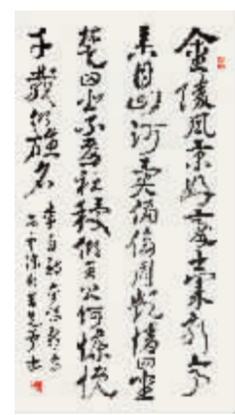 金陵風景好豪士集新亭
舉目山河異偏傷周顗情四坐
楚囚悲不憂社稷傾王公何慷慨
千載仰雄名
李白詩金陵新亭